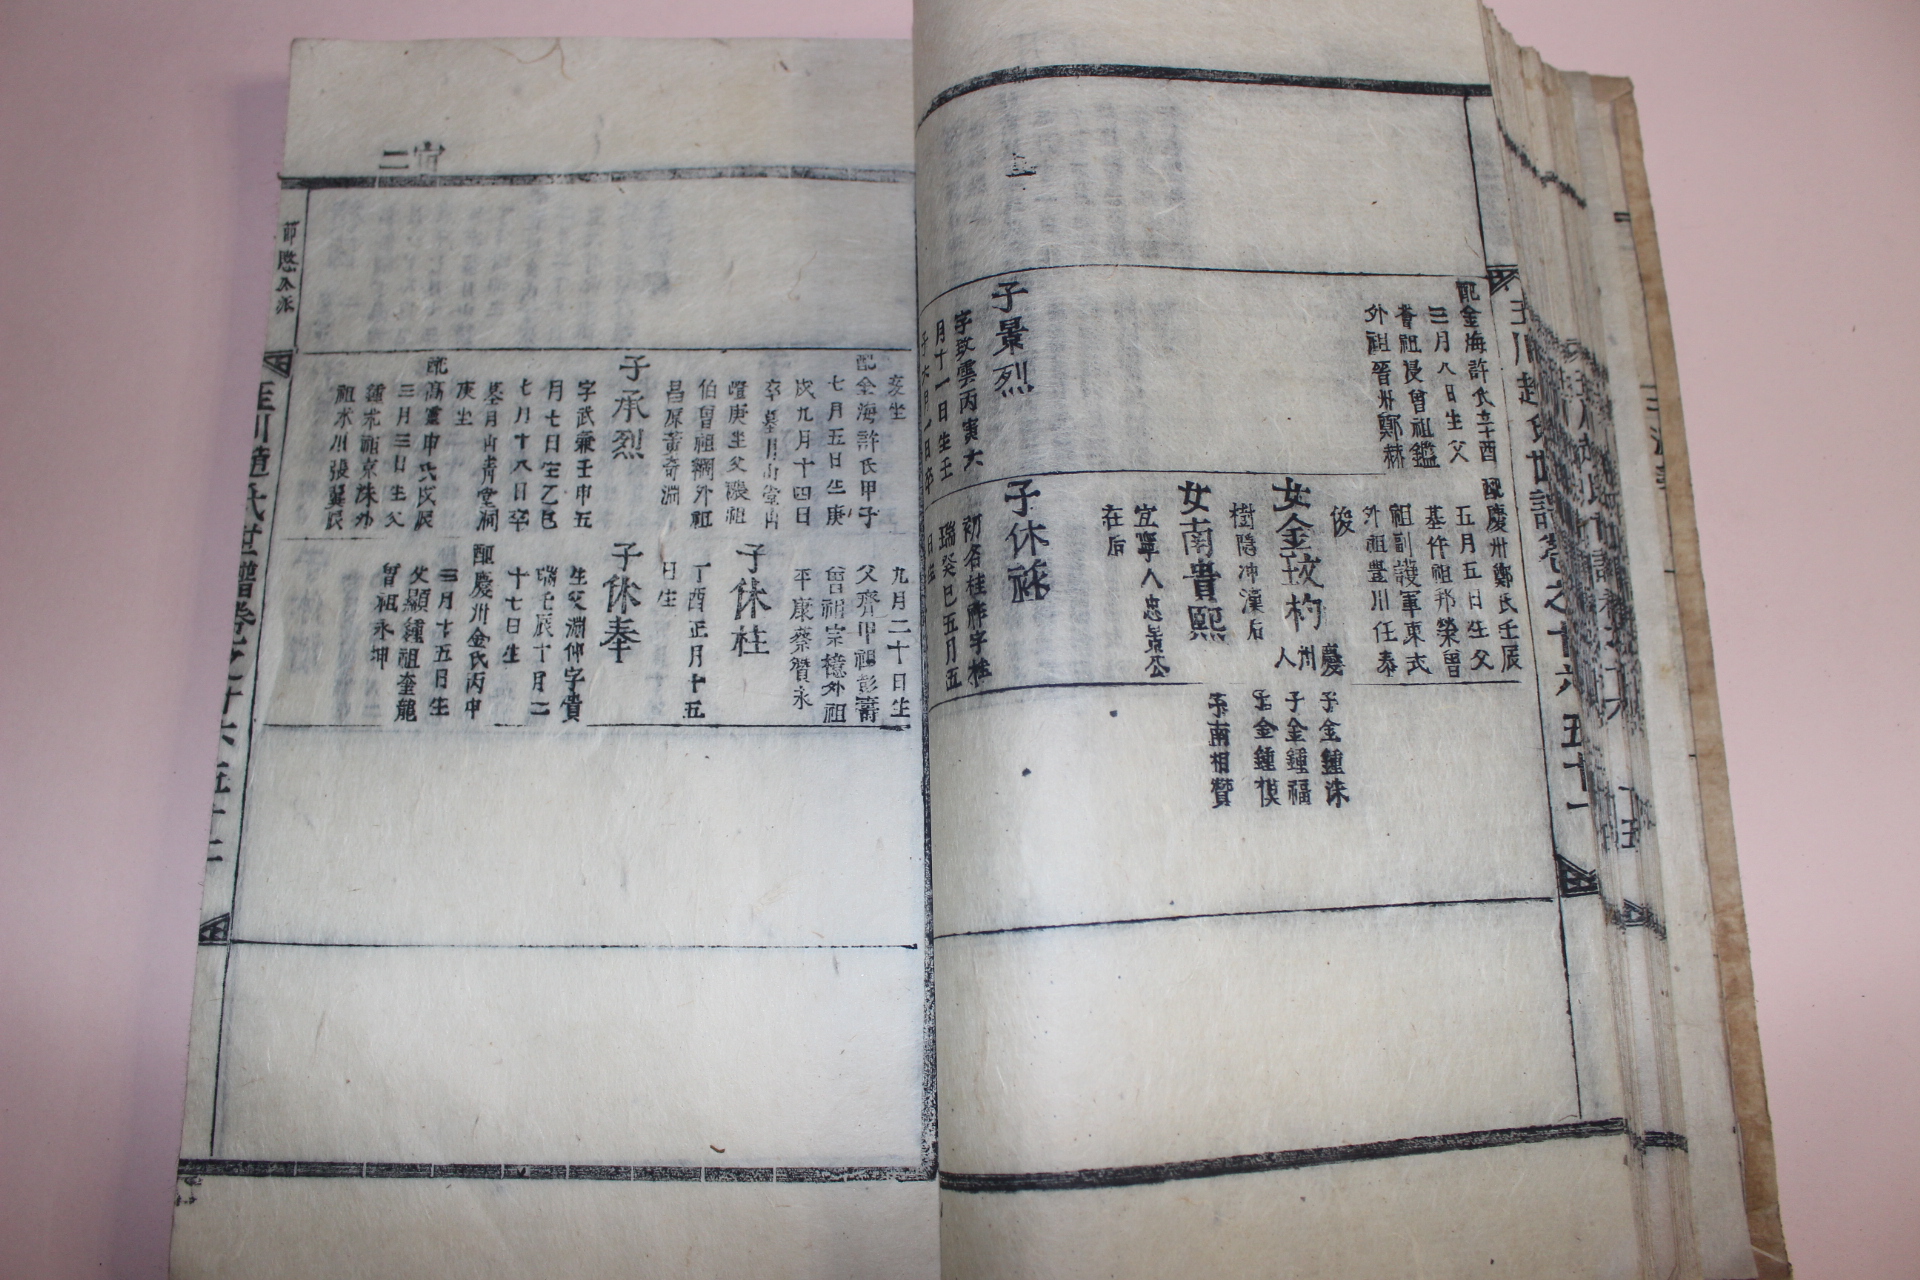 配金海許氏辛酉
三月八日生父
耆祖浸曾祖鑑
外祖晉州鄭赫
子景烈
字致雲丙寅六
月十一日生壬
子六月一日卒
配慶州鄭氏壬辰
五月五日生父
基仵祖邦榮曾
祖副護軍東式
外祖豊川任泰
俊
女金玟杓
慶州人
樹隱冲漢后
女南貴熙
宜寧人忠景公
在后
子休
初名桂祚字桂
瑞癸巳五月五
日生
子金鍾洙
子金鍾福
子金鍾模
子南相贊
趙氏世譜卷之十六 五十一
宙二
亥坐
配金海許氏甲子
七月五日生庚
戌九月十四日
卒墓月山堂山
雚庚坐父禯祖
伯曾祖禂外祖
昌原黃奇淵
子承烈
字武兼壬申五
月七日生乙巳
七月十八日卒
墓月山靑堂洞
庚坐
配高靈申氏戊辰
三月三日生父
鍾求祖京洙外
祖氷川張翼辰
九月二十日生
父齊甲祖彭壽
曾祖宗檍外祖
平康蔡贊永
子休柱
丁酉正月十五
日生
子休奉
生父淵仲字貴
瑞壬辰十月二
十七日生
配慶州金氏丙申
三月十五日生
父顯鍾祖奎龍
曾祖永坤
趙氏世譜卷之十六 五十二